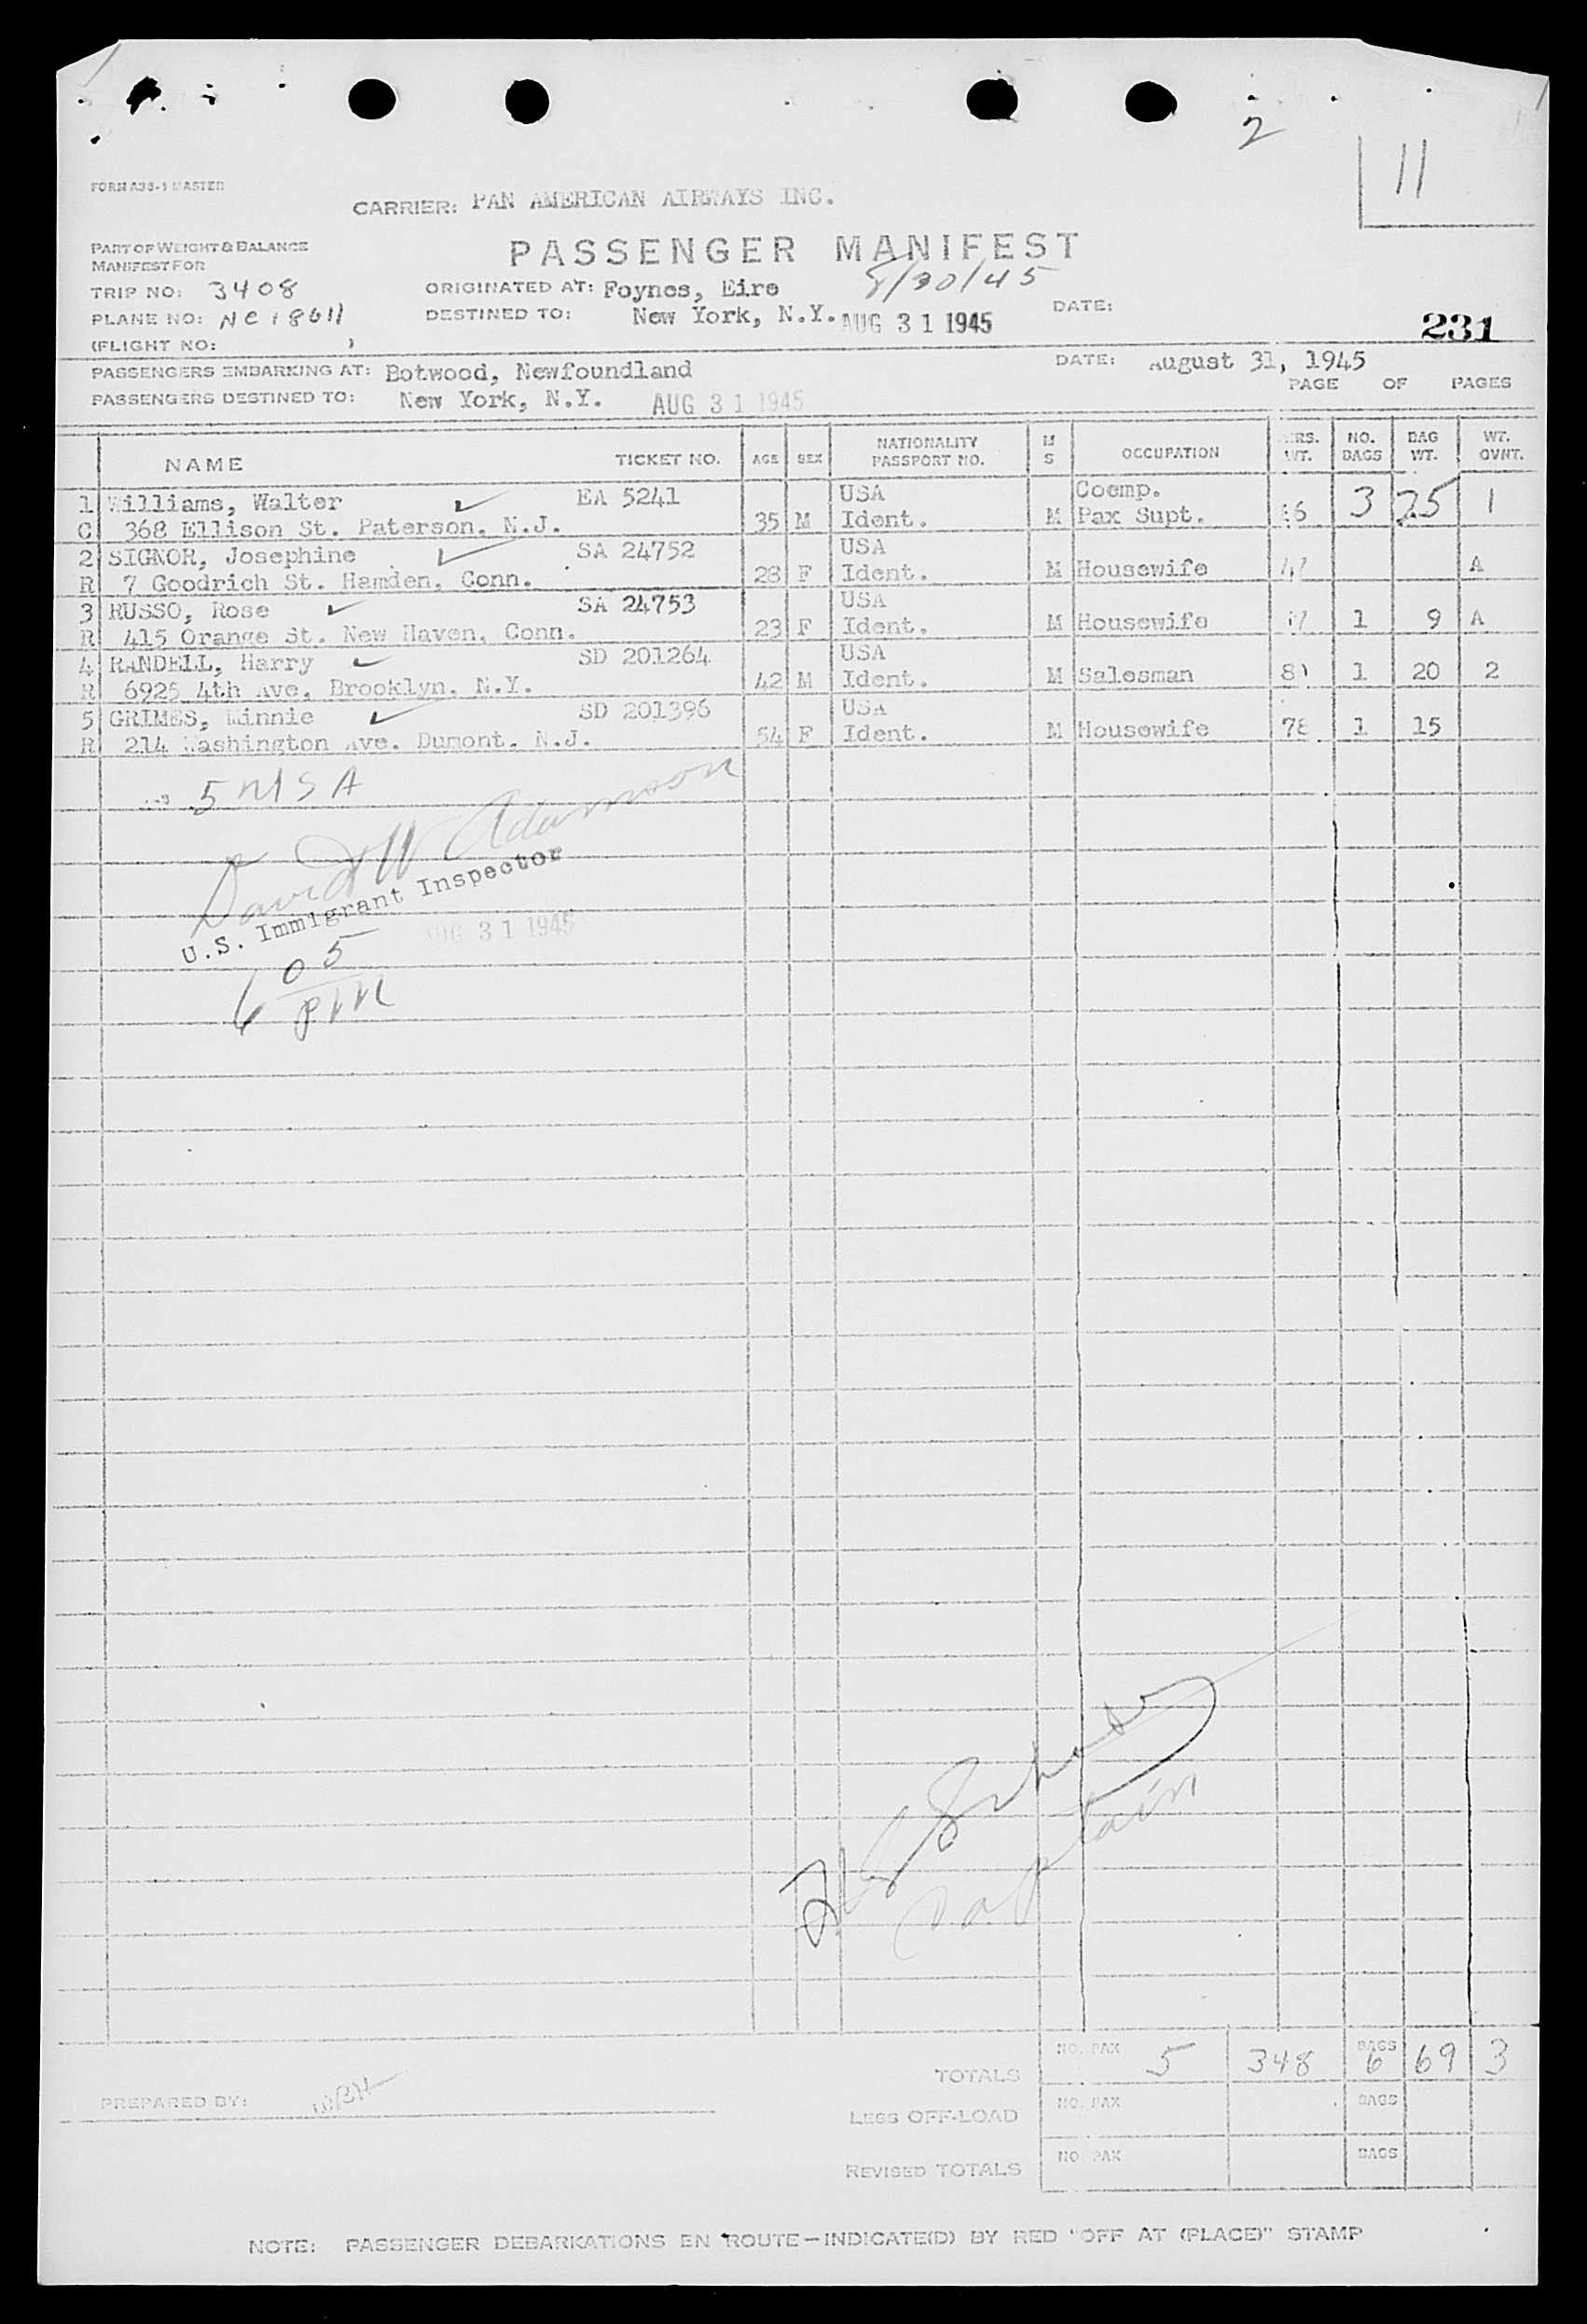 2
11
FORM A38-1 MASTER
CARRIER: PAN AMERICAN AIRWAYS INC.
PART OF WEIGHT & BALANCE
MANIFEST FOR
PASSENGER MANIFEST
TRIP NO: 3408
ORIGINATED AT: Foynes, Eire 8/30/45
PLANE NO: NC 18611
DESTINED TO: New York, N.Y. AUG 31 1945 DATE:
231
(FLIGHT NO: )
PASSENGERS EMBARKING AT: Botwood, Newfoundland DATE: August 31, 1945
PAGE OF PAGES
PASSENGERS DESTINED TO: New York, N.Y. AUG 31 1945
NAME TICKET NO. AGE SEX NATIONALITY PASSPORT NO. M S OCCUPATION WT. NO. BAGS BAG WT. WT. OVNT.
1 Williams, Walter EA 5241 USA Coemp.
C 368 Ellison St. Paterson. N.J. 35 M Ident. M Pax Supt. 3 25 1
2 SIGNOR, Josephine SA 24752 USA
R 7 Goodrich St. Hamden, Conn. 28 F Ident. M Housewife A
3 RUSSO, Rose SA 24753 USA
R 415 Orange St. New Haven, Conn. 23 F Ident. M Housewife 1 9 A
4 RANDELL, Harry SD 201264 USA
R 6925 4th Ave. Brooklyn. N.Y. 42 M Ident. M Salesman 1 20 2
5 GRIMES, Minnie SD 201396 USA
R 214 Washington Ave. Dumont. N.J. 54 F Ident. M Housewife 78 1 15
5 USA
David W Adamson
U.S. Immigrant Inspector
AUG 31 1945
6 05 PM
Captain
TOTALS NO. PAX 5 348 BAGS 6 69 3
PREPARED BY: WBH
LESS OFF-LOAD NO. PAX BAGS
REVISED TOTALS NO. PAX BAGS
NOTE: PASSENGER DEBARKATIONS EN ROUTE—INDICATE(D) BY RED "OFF AT (PLACE)" STAMP